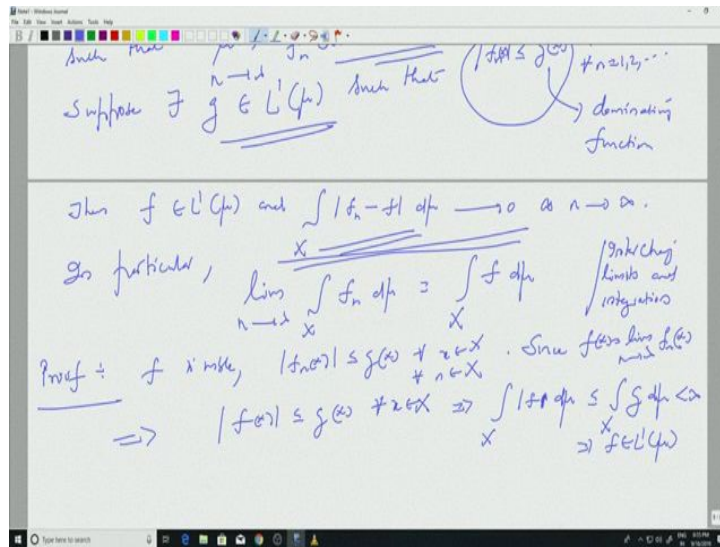 Note1 - Windows Journal
File Edit View Insert Actions Tools Help
such that lim n→∞ fn = |fn(x)| ≤ g(x) ∀ n=1,2,...
Suppose ∃ g ∈ L¹(μ) such that
→ dominating
function
Then f ∈ L¹(μ) and ∫_X |fn - f| dμ → 0 as n → ∞.
In particular, lim n→∞ ∫_X fn dμ = ∫_X f dμ
Interchang
limits and
integrations
Proof ÷ f is mble, |fn(x)| ≤ g(x) ∀ x∈X ∀ n∈ℕ. Since f(x) = lim n→∞ fn(x)
⟹ |f(x)| ≤ g(x) ∀ x∈X ⇒ ∫_X |f| dμ ≤ ∫_X g dμ < ∞
⇒ f∈L¹(μ)
Type here to search
9:55 PM
9/16/2019